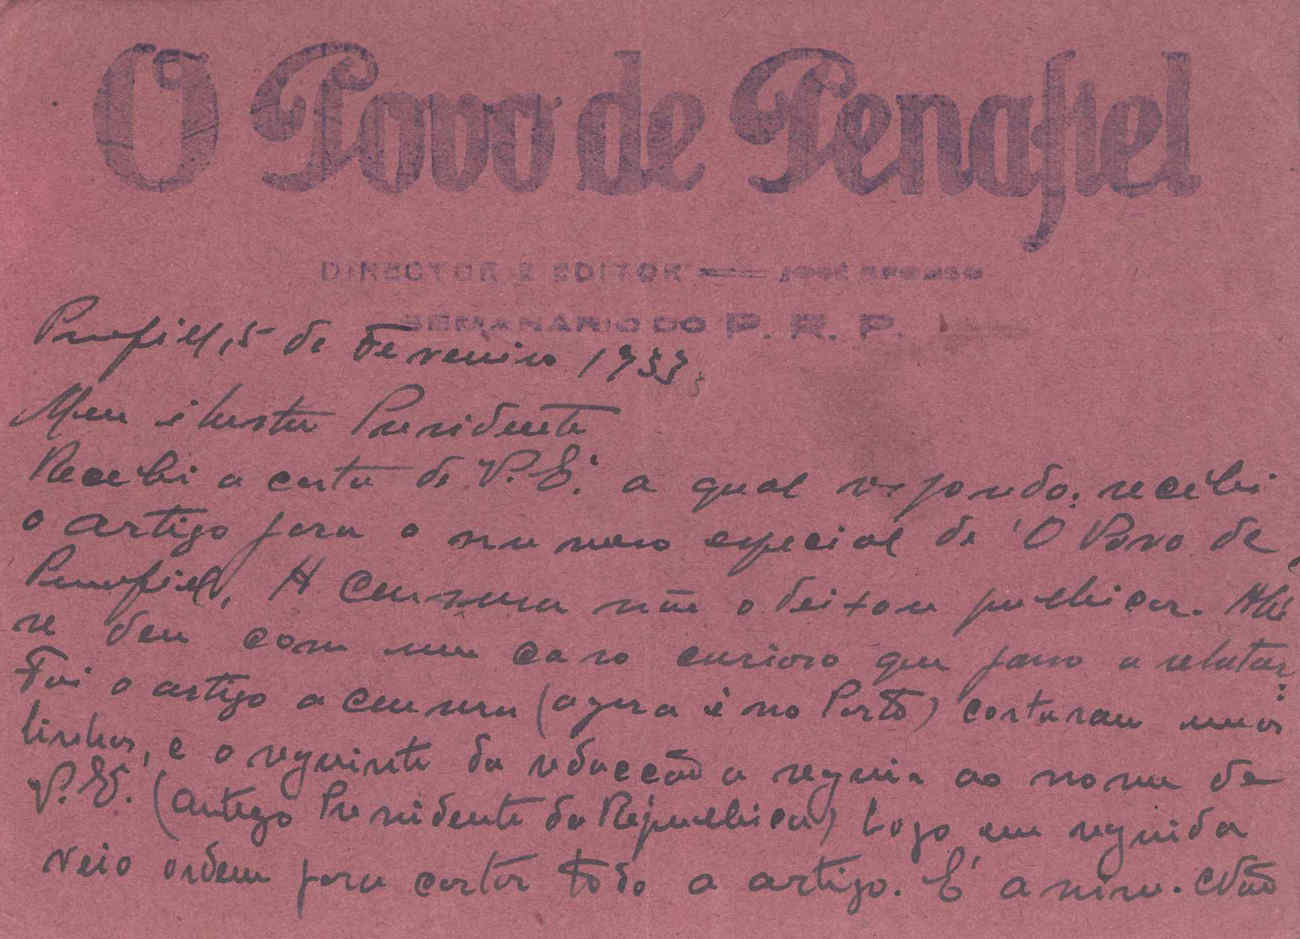 O Povo de Penafiel
DIRECTOR E EDITOR — JOSÉ
SEMANARIO DO P. R. P.
Penafiel, 5 de Fevereiro 1933
Meu ilustre Presidente
Recebi a carta de V. E. a qual respondo; recebi
o artigo para o numero especial de "O Povo de
Penafiel, A Censura não o deixou publicar. Ali
se deu com um caso curioso que passo a relatar:
Foi o artigo a censura (agora é no Porto) cortaram umas
linhas, e o seguinte da redacção a seguir ao nome de
V. E. (antigo Presidente da Republica) Logo em seguida
veio ordem para cortar todo o artigo. É assim. Não